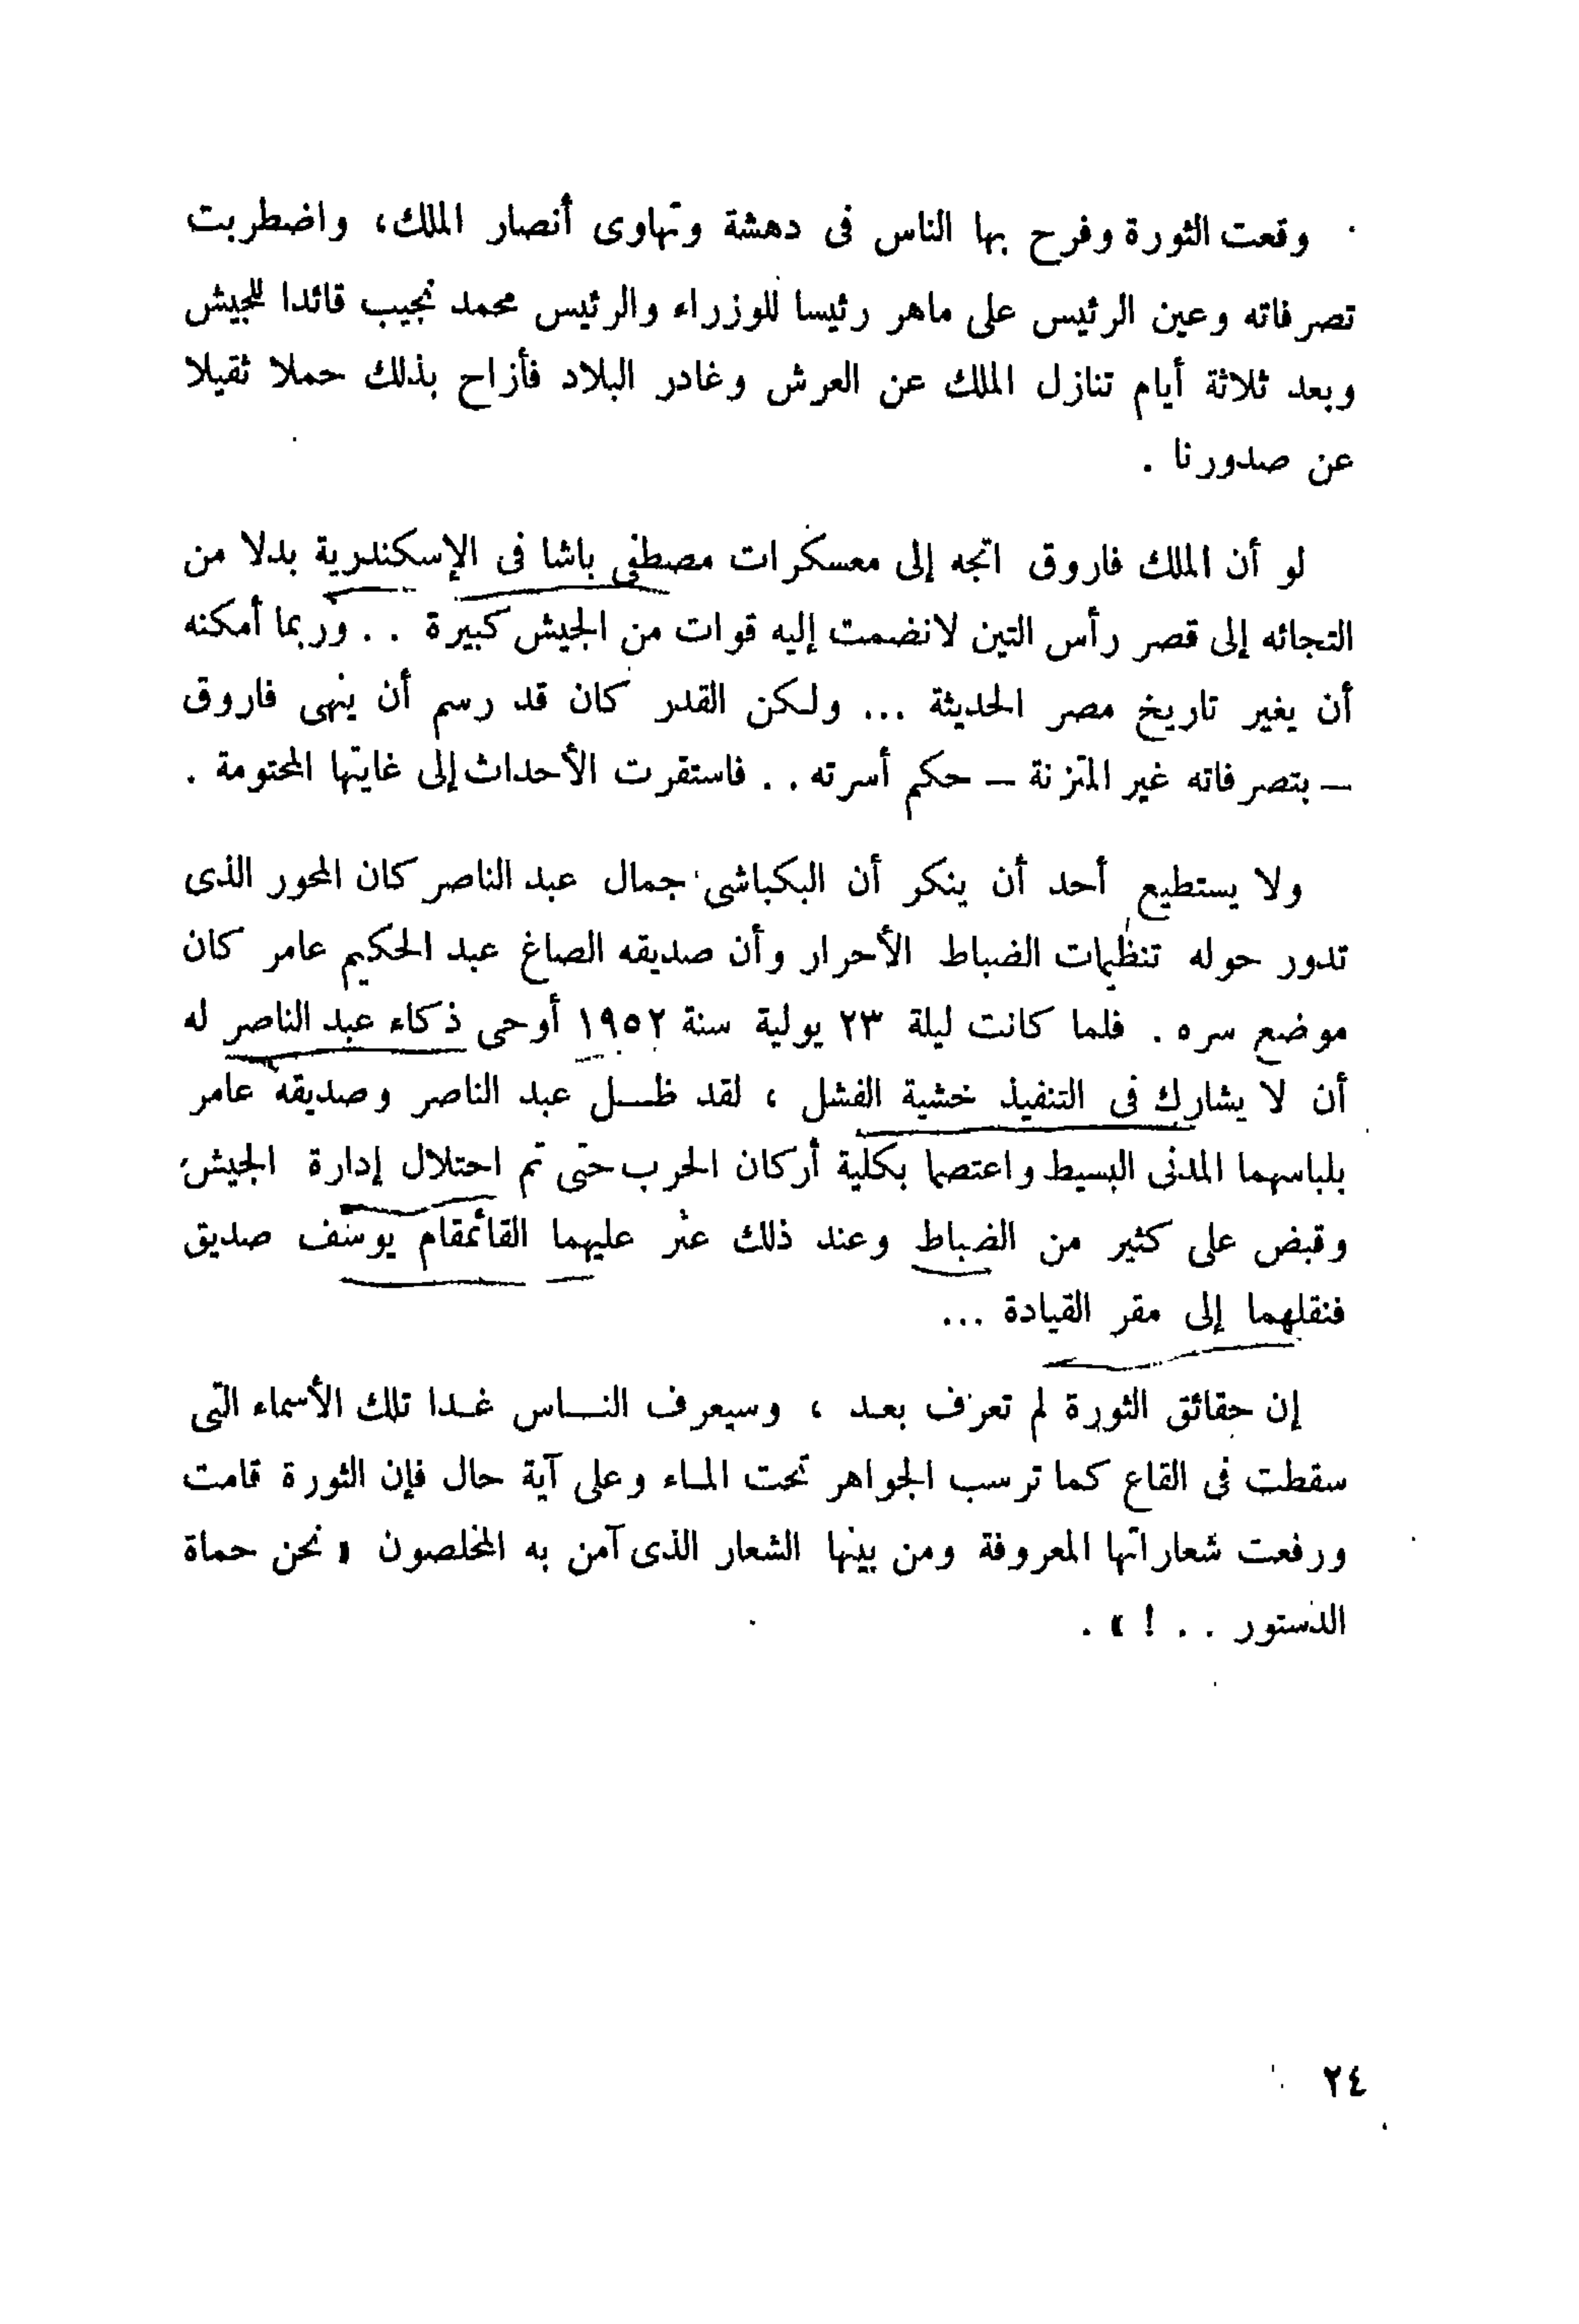 وقعت الثورة وفرح بها الناس فى دهشة وتهاوى أنصار الملك، واضطربت
تصرفاته وعين الرئيس على ماهر رئيسا للوزراء والرئيس محمد نجيب قائدا للجيش
وبعد ثلاثة أيام تنازل الملك عن العرش وغادر البلاد فأزاح بذلك حملا ثقيلا
عن صدورنا .
لو أن الملك فاروق اتجه إلى معسكرات مصطفى باشا فى الإسكندرية بدلا من
التجائه إلى قصر رأس التين لانضمت إليه قوات من الجيش كبيرة . . وربما أمكنه
أن يغير تاريخ مصر الحديثة ... ولكن القدر كان قد رسم أن ينهى فاروق
– بتصرفاته غير المتزنة – حكم أسرته . . فاستقرت الأحداث إلى غايتها المحتومة .
ولا يستطيع أحد أن ينكر أن البكباشى جمال عبد الناصر كان المحور الذى
تدور حوله تنظيمات الضباط الأحرار وأن صديقه الصاغ عبد الحكيم عامر كان
موضع سره . فلما كانت ليلة ٢٣ يولية سنة ١٩٥٢ أوحى ذكاء عبد الناصر له
أن لا يشارك فى التنفيذ خشية الفشل ، لقد ظل عبد الناصر وصديقه عامر
بلباسهما المدنى البسيط واعتصما بكلية أركان الحرب حتى تم احتلال إدارة الجيش
وقبض على كثير من الضباط وعند ذلك عثر عليهما القائمقام يوسف صديق
فنقلهما إلى مقر القيادة ...
إن حقائق الثورة لم تعرف بعد ، وسيعرف الناس غدا تلك الأسماء التى
سقطت فى القاع كما ترسب الجواهر تحت الماء وعلى آية حال فإن الثورة قامت
ورفعت شعاراتها المعروفة ومن بينها الشعار الذى آمن به المخلصون « نحن حماة
الدستور . . ! » .
٢٤